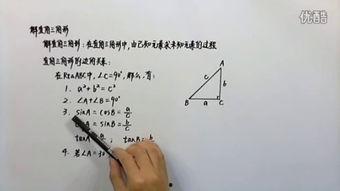 优酷
解直角三角形
解直角三角形：在直角三角形中，由已知元素求未知元素的过程
直角三角形的边角关系：
在Rt△ABC中，∠C=90°，那么，有：
1. a²+b²=c²
2. ∠A+∠B=90°
3. sinA=cosB=a/c
sinB=b/c
tanA= ； tanB=b
4. 若∠A=30°
A
c
b
B
a
C